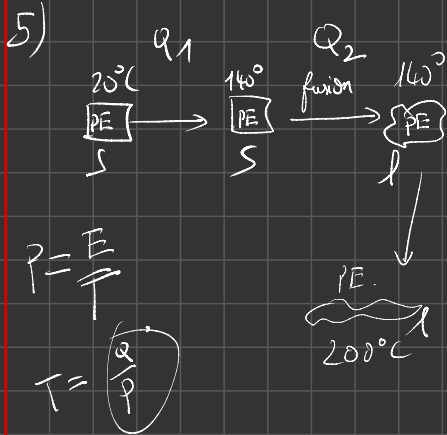 5)
Q1 Q2
20°C 140° fusion 140°
PE PE PE
S S l
P = E/T
PE.
l
200°C
T = Q/P